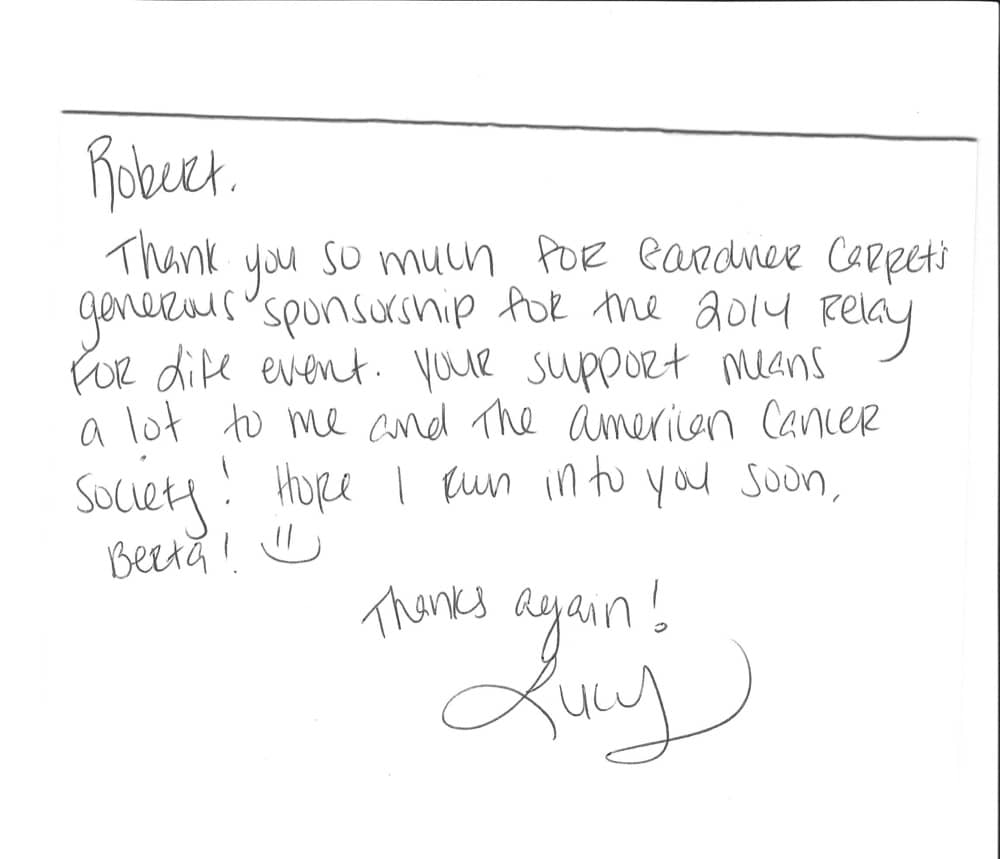 Robert.
Thank you so much for Gardner Carpet's
generous sponsorship for the 2014 Relay
For Life event. Your support means
a lot to me and the American Cancer
Society! Hope I run into you soon,
Berta! "
Thanks again!
Lucy